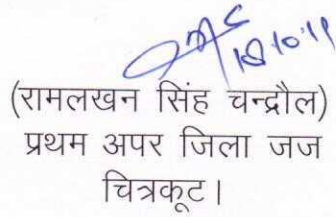 18.10.11
(रामलखन सिंह चन्द्रौल)
प्रथम अपर जिला जज
चित्रकूट।